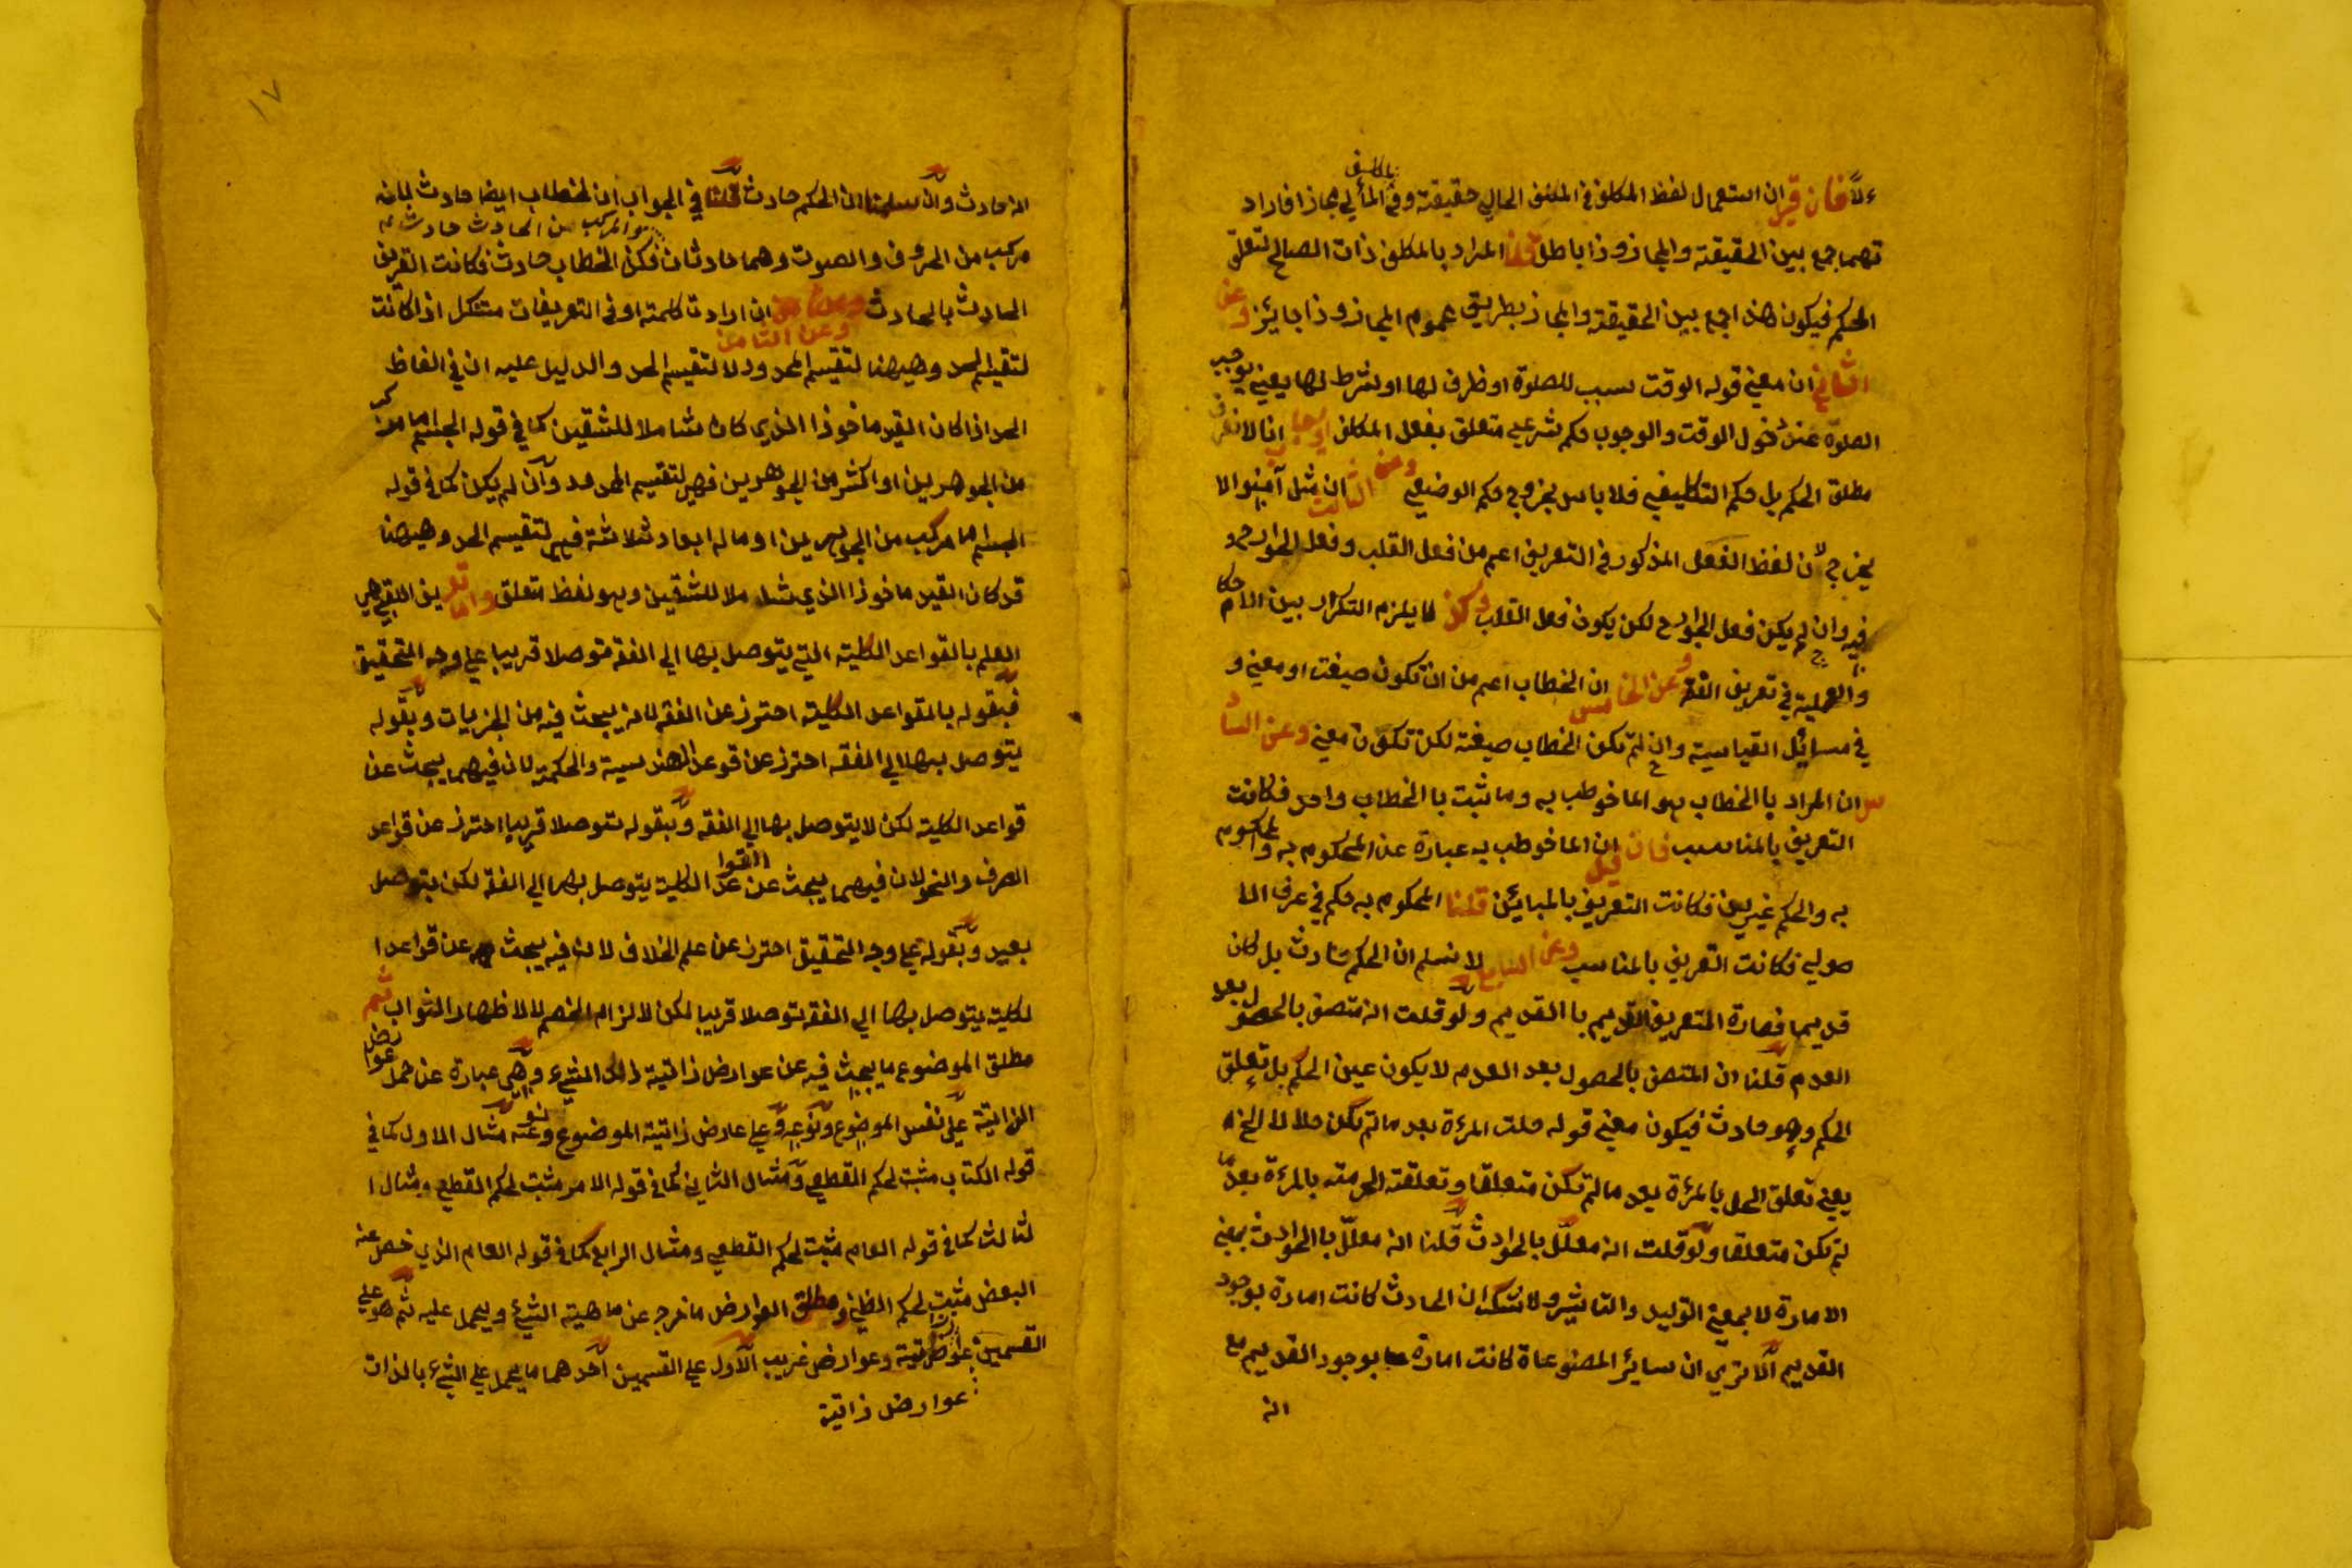 ءلاً فان قيل ان استعمال لفظ المكلف في المكلف الحالي حقيقة وفي المألي مجازا فاراد
بالمكلف
تهما جمع بين الحقيقة والمجاز وذا باطل قلنا المراد بالمكلف ذات الصالح لتعلق
الحكم فيكون هذا جمع بين الحقيقة والمجاز بطريق عموم المجاز وذا جايز وعن
الثاني ان معني قوله الوقت سبب للصلوة او ظرف لها او شرط لها يعني يوجب
الصلوة عند دخول الوقت والوجوب حكم شرعي متعلق بفعل المكلف او جاب انا لا نعرف
مطلق الحكم بل حكم التكليفي فلا باس بخروج حكم الوضيعي وعن الثالث ان مثل آمنوا لا
يخرج لان لفظ الفعل المذكور في التعريف اعم من فعل القلب وفعل الجوارح و
فيه وان لم يكن فعل الجوارح لكن يكون فعل القلب وكذ لا يلزم التكرار بين الاحكام
والعملية في تعريف الفقه وعن الخامس ان الخطاب اعم من ان تكون صيغت او معني و
في مسائل القياسية وان لم تكن الخطاب صيغة لكن تكون معني وعن السا
دس ان المراد با الخطاب هو الما خوطب به وما ثبت با الخطاب واحد فكانت
التعريف بالمناسب فان قيل ان الما خوطب به عبارة عن المحكوم به والمحكوم
به والحكم غيرين فكانت التعريف بالمباين قلنا المحكوم به حكم في عرف الا
صولي فكانت التعريف بالمناسب وعن السابع لا نسلم ان الحكم حادث بل كان
قديما فصارة التعريف القديم با القديم ولو قلت انه متصف بالحصول بعد
العدم قلنا ان المتصف بالحصول بعد العدم لا يكون عين الحكم بل تعلق
الحكم وهو حادث فيكون معني قوله حلت المرءة بعد ما لم تكن حلالا الخ اه
يعني تعلق الحل بالمرءة بعد ما لم تكن متعلقا وتعلقت الحرمته بالمرءة بعد ما
لم تكن متعلقا ولو قلت انه معلل بالحوادث قلنا انه معلل با الحوادث بمعني
الامارة لا بمعني التوليد والتاثير ولا شك ان الحادث كانت امارة بوجود
القديم الا تري ان سائر المصنوعاة كانت امارة بوجود القديم مع
انه
١٧
انه حادث وان سلمنا ان الحكم حادث قلنا في الجواب ان الخطاب ايضا حادث لانه
والمركب من الحادث حادث
مركب من الحروف والصوت وهما حادثان فكذا الخطاب حادث فكانت التعريف
الحادث بالحادث وعن الثامن ان ارادت كلمة او في التعريفات متنكل اذا كانت
وعن الثامن
لتقسيم الحد وههنا لتقسيم المحدود لا لتقسيم الحد والدليل عليه ان في الفاظ
الحد اذا كان القيد ماخوذا الذي كان شاملا للشقين كما في قوله الجسم ما مركب
من الجوهرين او اكثر من الجوهرين فهي لتقسيم المحدود وان لم يكن كما في قوله
الجسم اما مركب من الجوهرين او ما له ابعاد ثلاثة فهي لتقسيم الحد وههنا
قد كان القيد ماخوذا الذي شاملا للشقين وهو لفظ متعلق واما تعريف اللقبي هي
العلم بالقواعد الكلية التي يتوصل بها الي الفقه توصلا قريبا علي وجه التحقيق
فبقوله بالقواعد الكلية احترز عن الفقه لانه يبحث فيه من الجزيات وبقوله
يتوصل بها الي الفقه احترز عن قوعد الهندسية والحكمة لان فيهما يبحث عن
قواعد الكلية لكن لا يتوصل بها الي الفقه وبقوله توصلا قريبا احترز عن قواعد
الصرف والنحو لان فيهما يبحث عن القواعد الكلية يتوصل بها الي الفقه لكن بتوصل
بعيد وبقوله علي وجه التحقيق احترز عن علم الخلاف لان فيه يبحث عن قواعد ا
لكلية يتوصل بها الي الفقه توصلا قريبا لكن لالزام الخصم لا لاظهار الثواب ثم
مطلق الموضوع ما يبحث فيه عن عوارض ذاتية ذلك الشيء وهي عبارة عن حمل عوارض
الذاتية علي نفس الموضوع ونوعه وعلي عارض ذاتية الموضوع ونوعه مثال الاول كما في
قوله الكتاب مثبت لحكم القطعي ومثال الثاني كما في قوله الامر مثبت لحكم القطعي ومثال ا
لثالث كما في قوله العام مثبت لحكم القطعي ومثال الرابع كما في قوله العام الذي خص عنه
البعض مثبت لحكم الظني ومطلق العوارض ما خرج عن ماهية الشيء ويحمل عليه ثم هو علي
القسمين عوارض ذاتية وعوارض غريب الاول علي القسمين احدهما ما يحمل علي الشيء بالذات
عوارض ذاتية